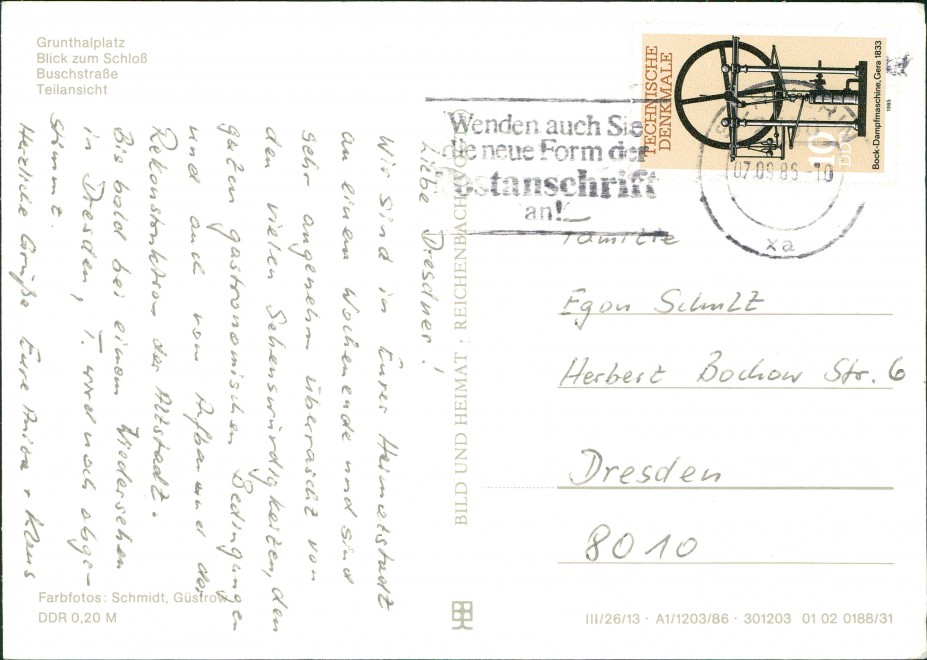 Grunthalplatz
Blick zum Schloß
Buschstraße
Teilansicht
Liebe Dresdner!
Wir sind in Eurer Heimatstadt
an einem Wochenende und sind
sehr angenehm überrascht von
den vielen Sehenswürdigkeiten, den
guten gastronomischen Bedingungen
und auch vom Aufbau und der
Rekonstruktion der Altstadt.
Bis bald bei einem Wiedersehen
in Dresden, T. wird noch abge-
stimmt.
Herzliche Grüße Eure Anita + Klaus
Farbfotos: Schmidt, Güstrow
DDR 0,20 M
BILD UND HEIMAT · REICHENBACH
TECHNISCHE
DENKMALE
10
DDR
Bock-Dampfmaschine, Gera 1833
1985
Wenden auch Sie
die neue Form der
Postanschrift
an!
07.09.86-10
xa
Familie
Egon Schulz
Herbert Bochow Str. 6
Dresden
8010
III/26/13 · A1/1203/86 · 301203 01 02 0188/31